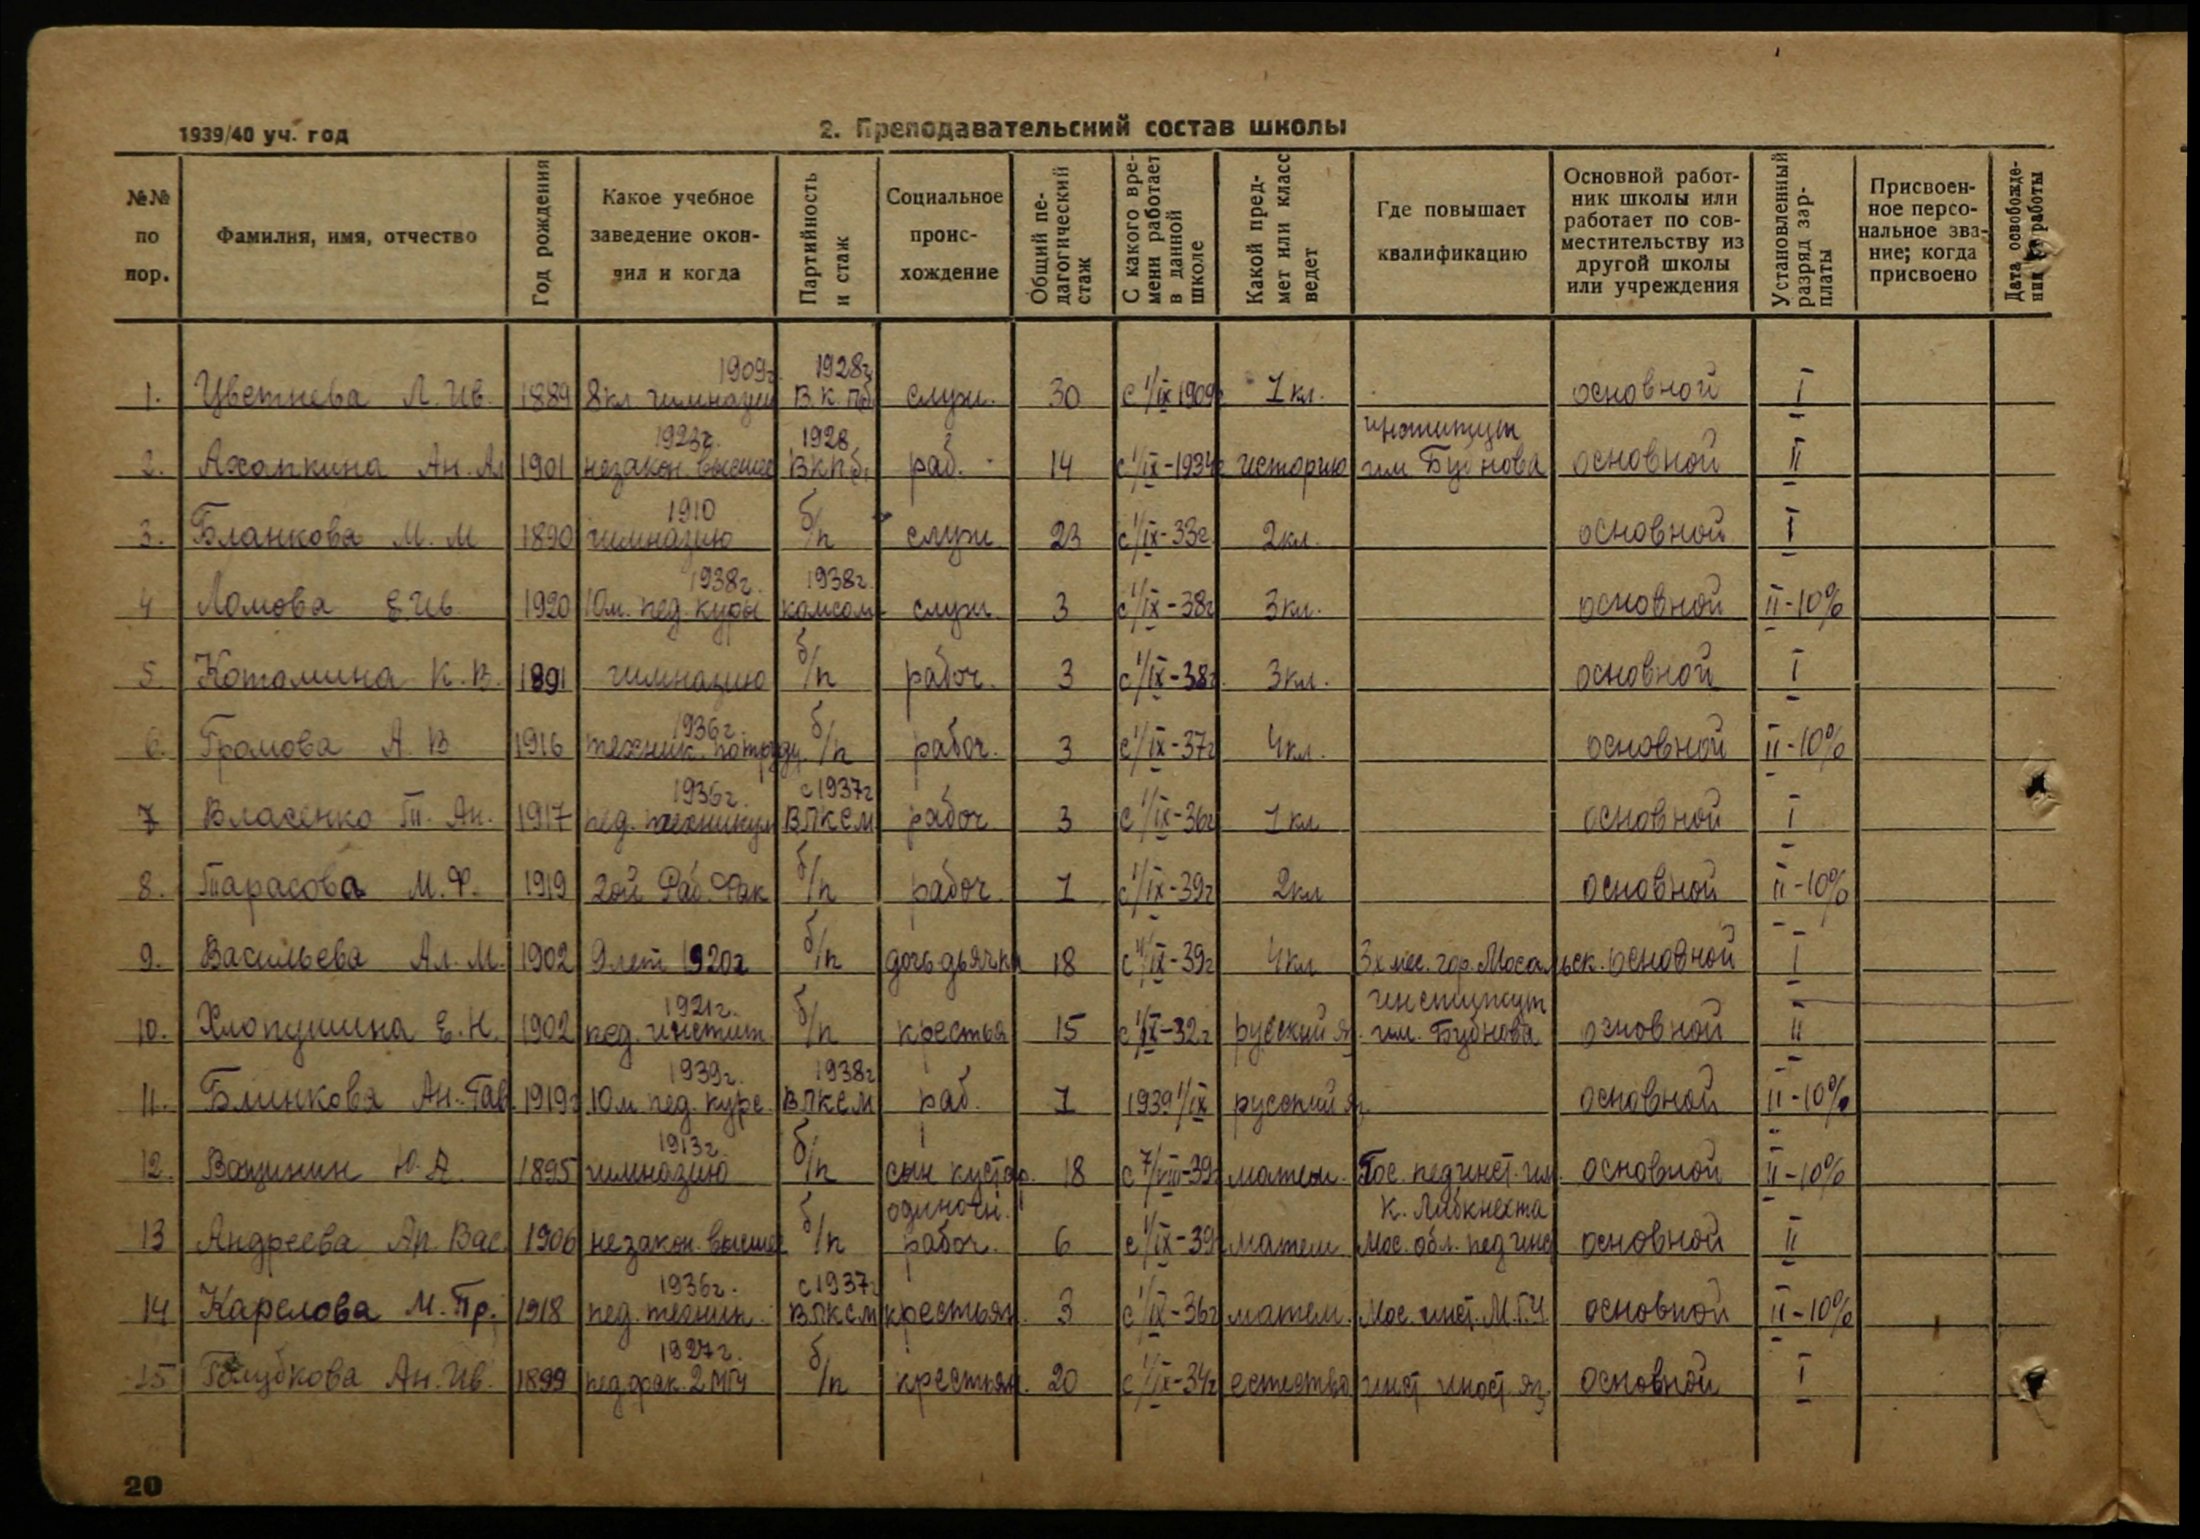 1939/40 уч. год
2. Преподавательский состав школы
№№ по пор.
Фамилия, имя, отчество
Год рождения
Какое учебное заведение окончил и когда
Партийность и стаж
Социальное происхождение
Общий педагогический стаж
С какого времени работает в данной школе
Какой предмет или класс ведет
Где повышает квалификацию
Основной работник школы или работает по совместительству из другой школы или учреждения
Установленный разряд зарплаты
Присвоенное персональное звание; когда присвоено
Дата освобождения от работы
1. Цветнева Л. Ив. 1889 8кл гимназии 1909г. 1928г. ВКПб служ. 30 с 1/IX 1909г 1 кл. основной I
2. Ахапкина Ан. Ал 1901 1923г. незакон. высшее 1928 ВКПб. раб. 14 с 1/IX-1934г историю институт им Бубнова основной II
3. Бланкова М. М 1890 1910 гимназию б/п служ 23 с 1/IX-33г 2кл. основной I
4 Ломова Е.Ив. 1920 1938г. 10м. пед. курсы 1938г. комсом служ. 3 с 1/IX-38г 3кл. основной II-10%
5 Котомина К. В. 1891 гимназию б/п рабоч. 3 с 1/IX-38г. 3кл. основной I
6. Громова А. В 1916 1936г. техник. по труду б/п рабоч. 3 с 1/IX-37г 4кл. основной II-10%
7 Власенко Т. Ан. 1917 1936г. пед. техникум с 1937г ВЛКСМ рабоч 3 с 1/IX-36г 1 кл основной I
8. Тарасова М. Ф. 1919 2ой Раб. Фак б/п рабоч. 1 с 1/IX-39г 2кл основной II-10%
9. Васильева Ал. М. 1902 9 лет 1920г б/п дочь дьячка 18 с 1/IX-39г 4кл 3х мес. гор. Мосальск. основной I
10. Хлопушина Е. Н. 1902 1921г. пед. инстит б/п крестья 15 с 1/IX-32г русский я. институт им. Бубнова основной II
11. Блинкова Ан. Гав. 1919г 1939г. 10м пед. курс. 1938г ВЛКСМ раб. 1 1939 1/IX русский я. основной II-10%
12. Ващинин Ю. А 1895 1913г. гимназию б/п сын кустар. одиночн. 18 с 7/VIII-39г матем. Гос. пединст. им. К. Либкнехта основной II-10%
13 Андреева Ап. Вас. 1906 незакон. высшее б/п рабоч. 6 с 1/IX-39 матем Мос. обл. пединс основной II
14 Карелова М. Пр. 1918 1936г. пед. техник. с 1937г ВЛКСМ крестьян. 3 с 1/IX-36г матем. Мос. инст. М.Г.У. основной II-10%
15 Голубкова Ан. Ив. 1899 1927г. пед фак. 2 МГУ б/п крестьян. 20 с 1/IX-34г естество инст иност яз. основной I
20